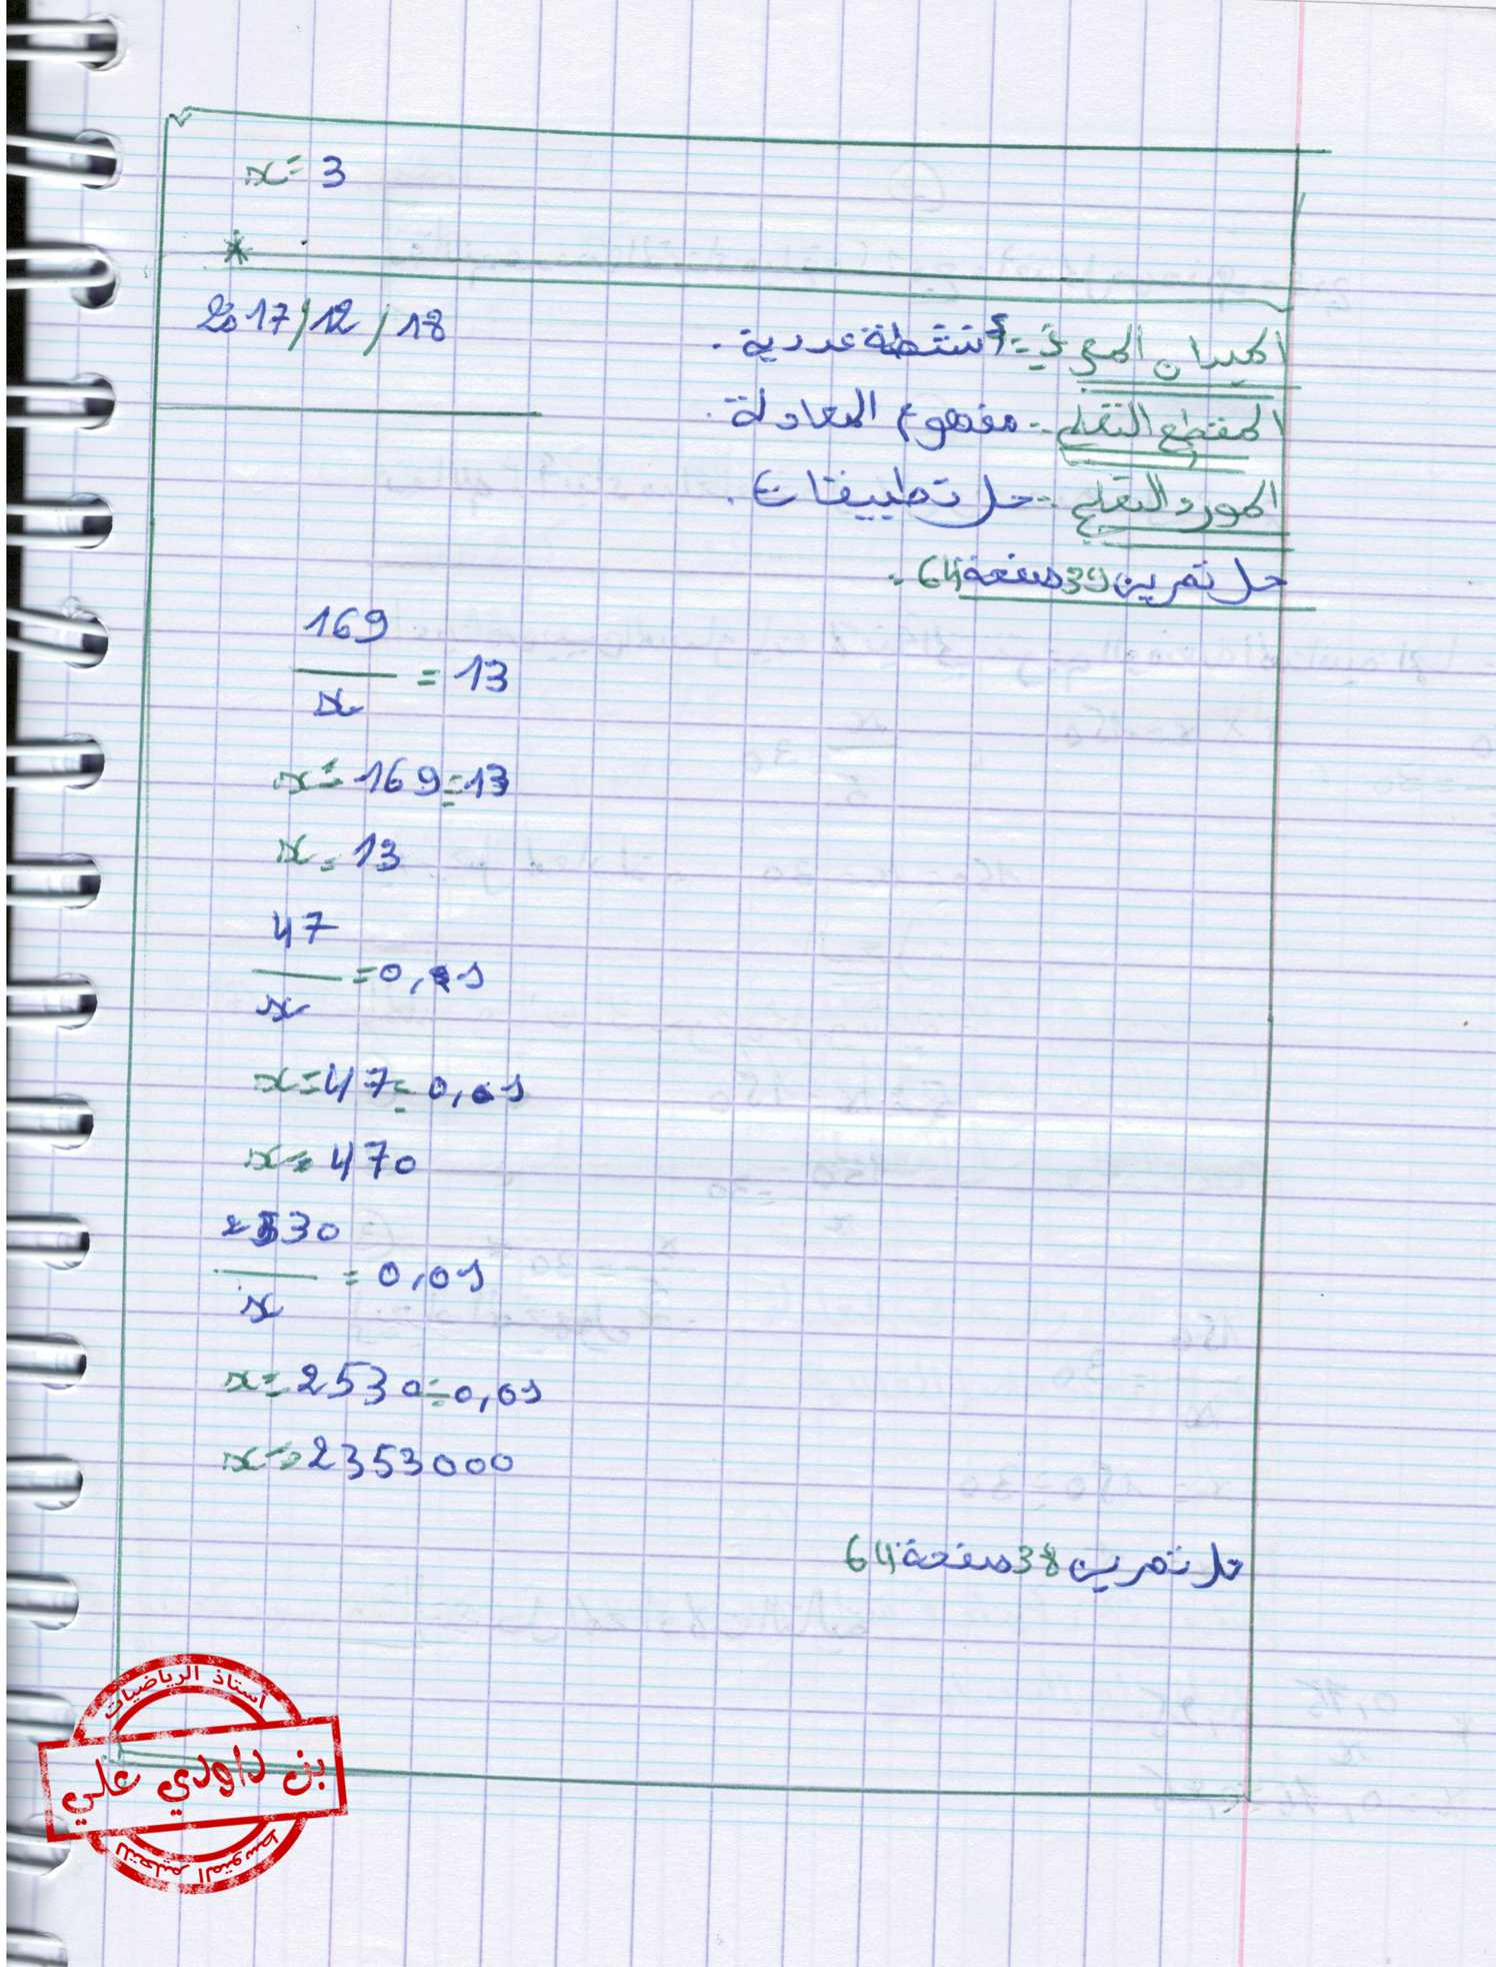 x = 3
*
2017/12/18
الميدان المعرفي :- أنشطة عددية .
المقطع التعلمي :- مفهوم المعادلة .
المورد التعلمي :- حل تطبيقات .
حل تمرين 39 صفحة 64 :-
169
— = 13
x
x = 169 ÷ 13
x = 13
47
— = 0,1
x
x = 47 ÷ 0,1
x = 470
2530
— = 0,01
x
x = 2530 ÷ 0,01
x = 2353000
حل تمرين 38 صفحة 64
أستاذ الرياضيات
بن داودي علي
للتعليم المتوسط